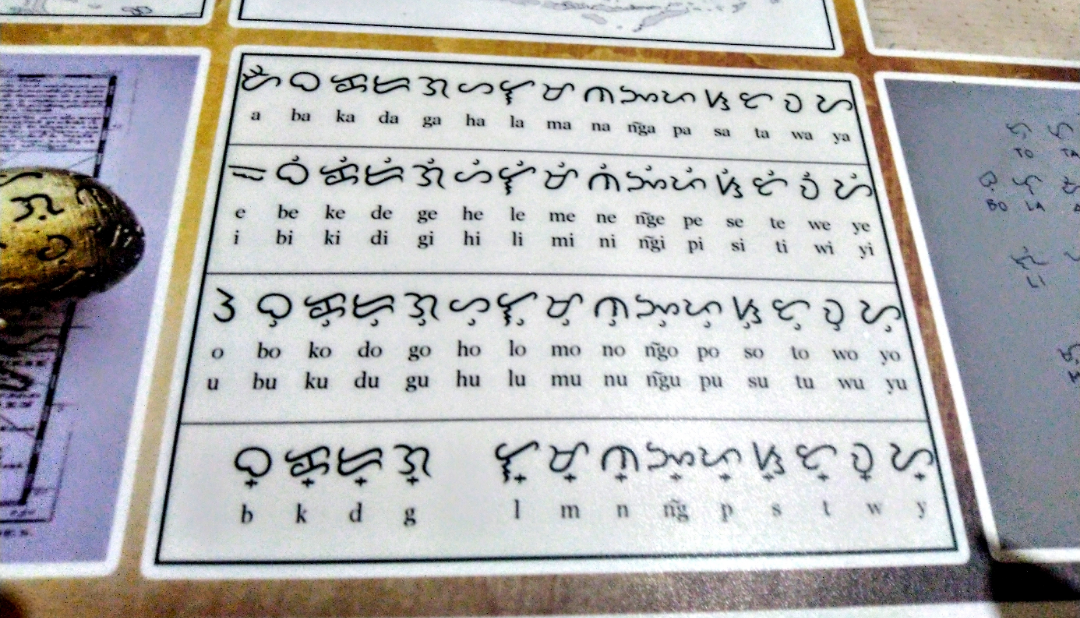 ᜀ ᜊ ᜃ ᜇ ᜄ ᜑ ᜎ ᜋ ᜈ ᜅ ᜉ ᜐ ᜆ ᜏ ᜌ
a ba ka da ga ha la ma na n͠ga pa sa ta wa ya
ᜁ ᜊᜒ ᜃᜒ ᜇᜒ ᜄᜒ ᜑᜒ ᜎᜒ ᜋᜒ ᜈᜒ ᜅᜒ ᜉᜒ ᜐᜒ ᜆᜒ ᜏᜒ ᜌᜒ
e be ke de ge he le me ne n͠ge pe se te we ye
i bi ki di gi hi li mi ni n͠gi pi si ti wi yi
ᜂ ᜊᜓ ᜃᜓ ᜇᜓ ᜄᜓ ᜑᜓ ᜎᜓ ᜋᜓ ᜈᜓ ᜅᜓ ᜉᜓ ᜐᜓ ᜆᜓ ᜏᜓ ᜌᜓ
o bo ko do go ho lo mo no n͠go po so to wo yo
u bu ku du gu hu lu mu nu n͠gu pu su tu wu yu
ᜊ᜔ ᜃ᜔ ᜇ᜔ ᜄ᜔ ᜎ᜔ ᜋ᜔ ᜈ᜔ ᜅ᜔ ᜉ᜔ ᜐ᜔ ᜆ᜔ ᜏ᜔ ᜌ᜔
b k d g l m n n͠g p s t w y
TO TA
BO LA
LI